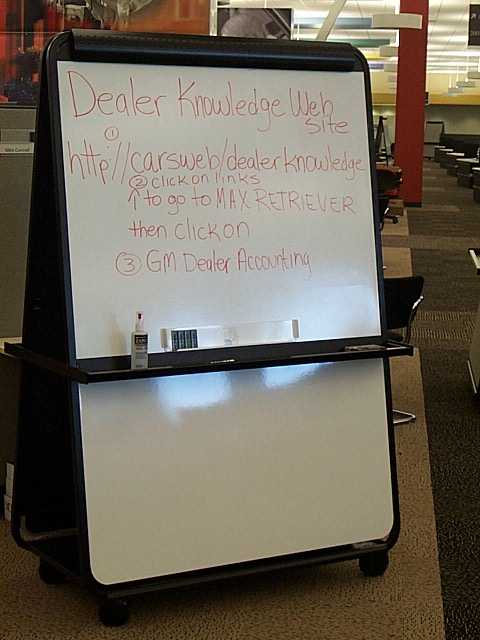 Dealer Knowledge Web
Site
①
http://carsweb/dealerknowledge
② click on links
↑ to go to MAX RETRIEVER
then click on
③ GM Dealer Accounting